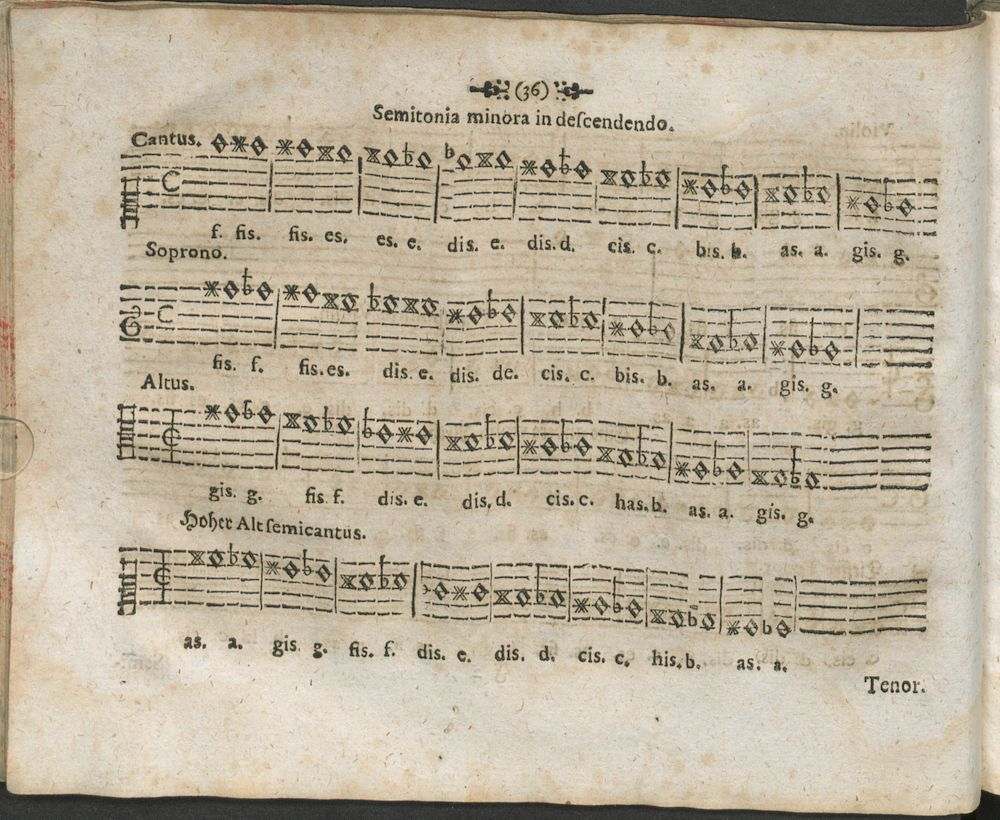 (36)
Semitonia minora in deſcendendo.
Cantus.
f. fis. fis. es. es. e. dis. e. dis. d. cis. c. bis. b. as. a. gis. g.
Soprono.
fis. f. fis. es. dis. e. dis. de. cis. c. bis. b. as. a. gis. g.
Altus.
gis. g. fis f. dis. e. dis. d. cis. c. has. b. as. a. gis. g.
Hoher Alt ſemicantus.
as. a. gis g. fis. f. dis. e. dis. d. cis. c. his. b. as. a.
Tenor.